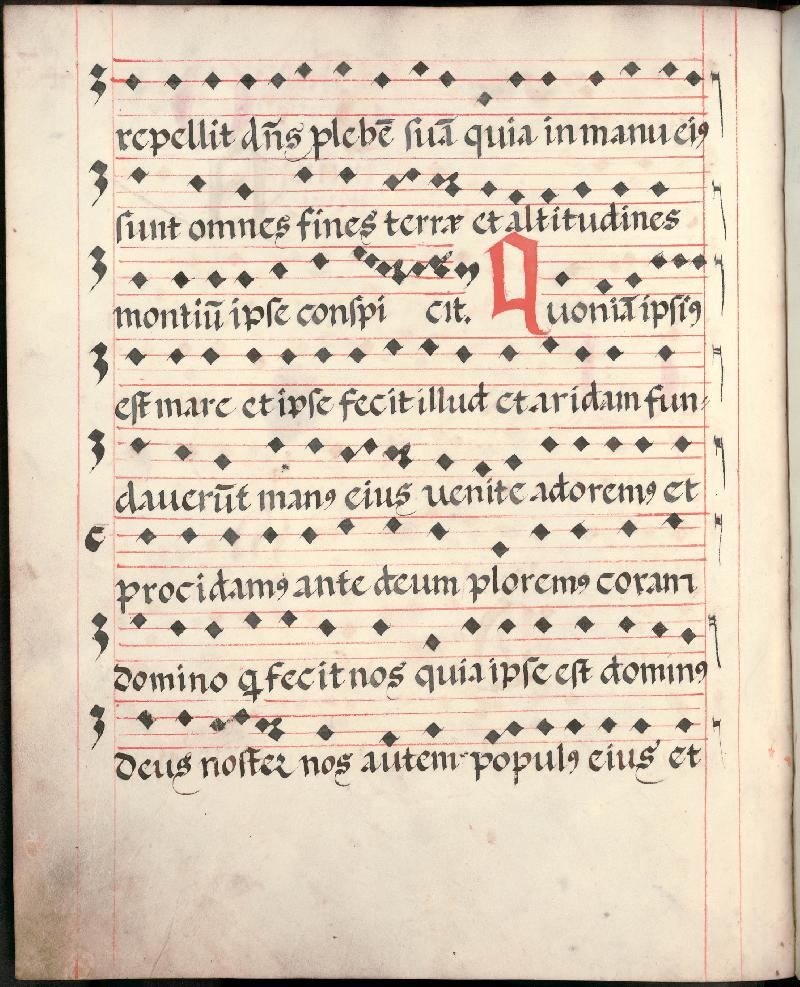 repellit dn̄s plebē suā quia in manu eiꝰ
sunt omnes fines terræ et altitudines
montiū ipse conspi cit. Quoniā ipsiꝰ
est mare et ipse fecit illud et aridam fun-
dauerūt manꝰ eius uenite adoremꝰ et
procidamꝰ ante deum ploremꝰ coram
domino q̄ fecit nos quia ipse est dominꝰ
deus noster nos autem populꝰ eius et